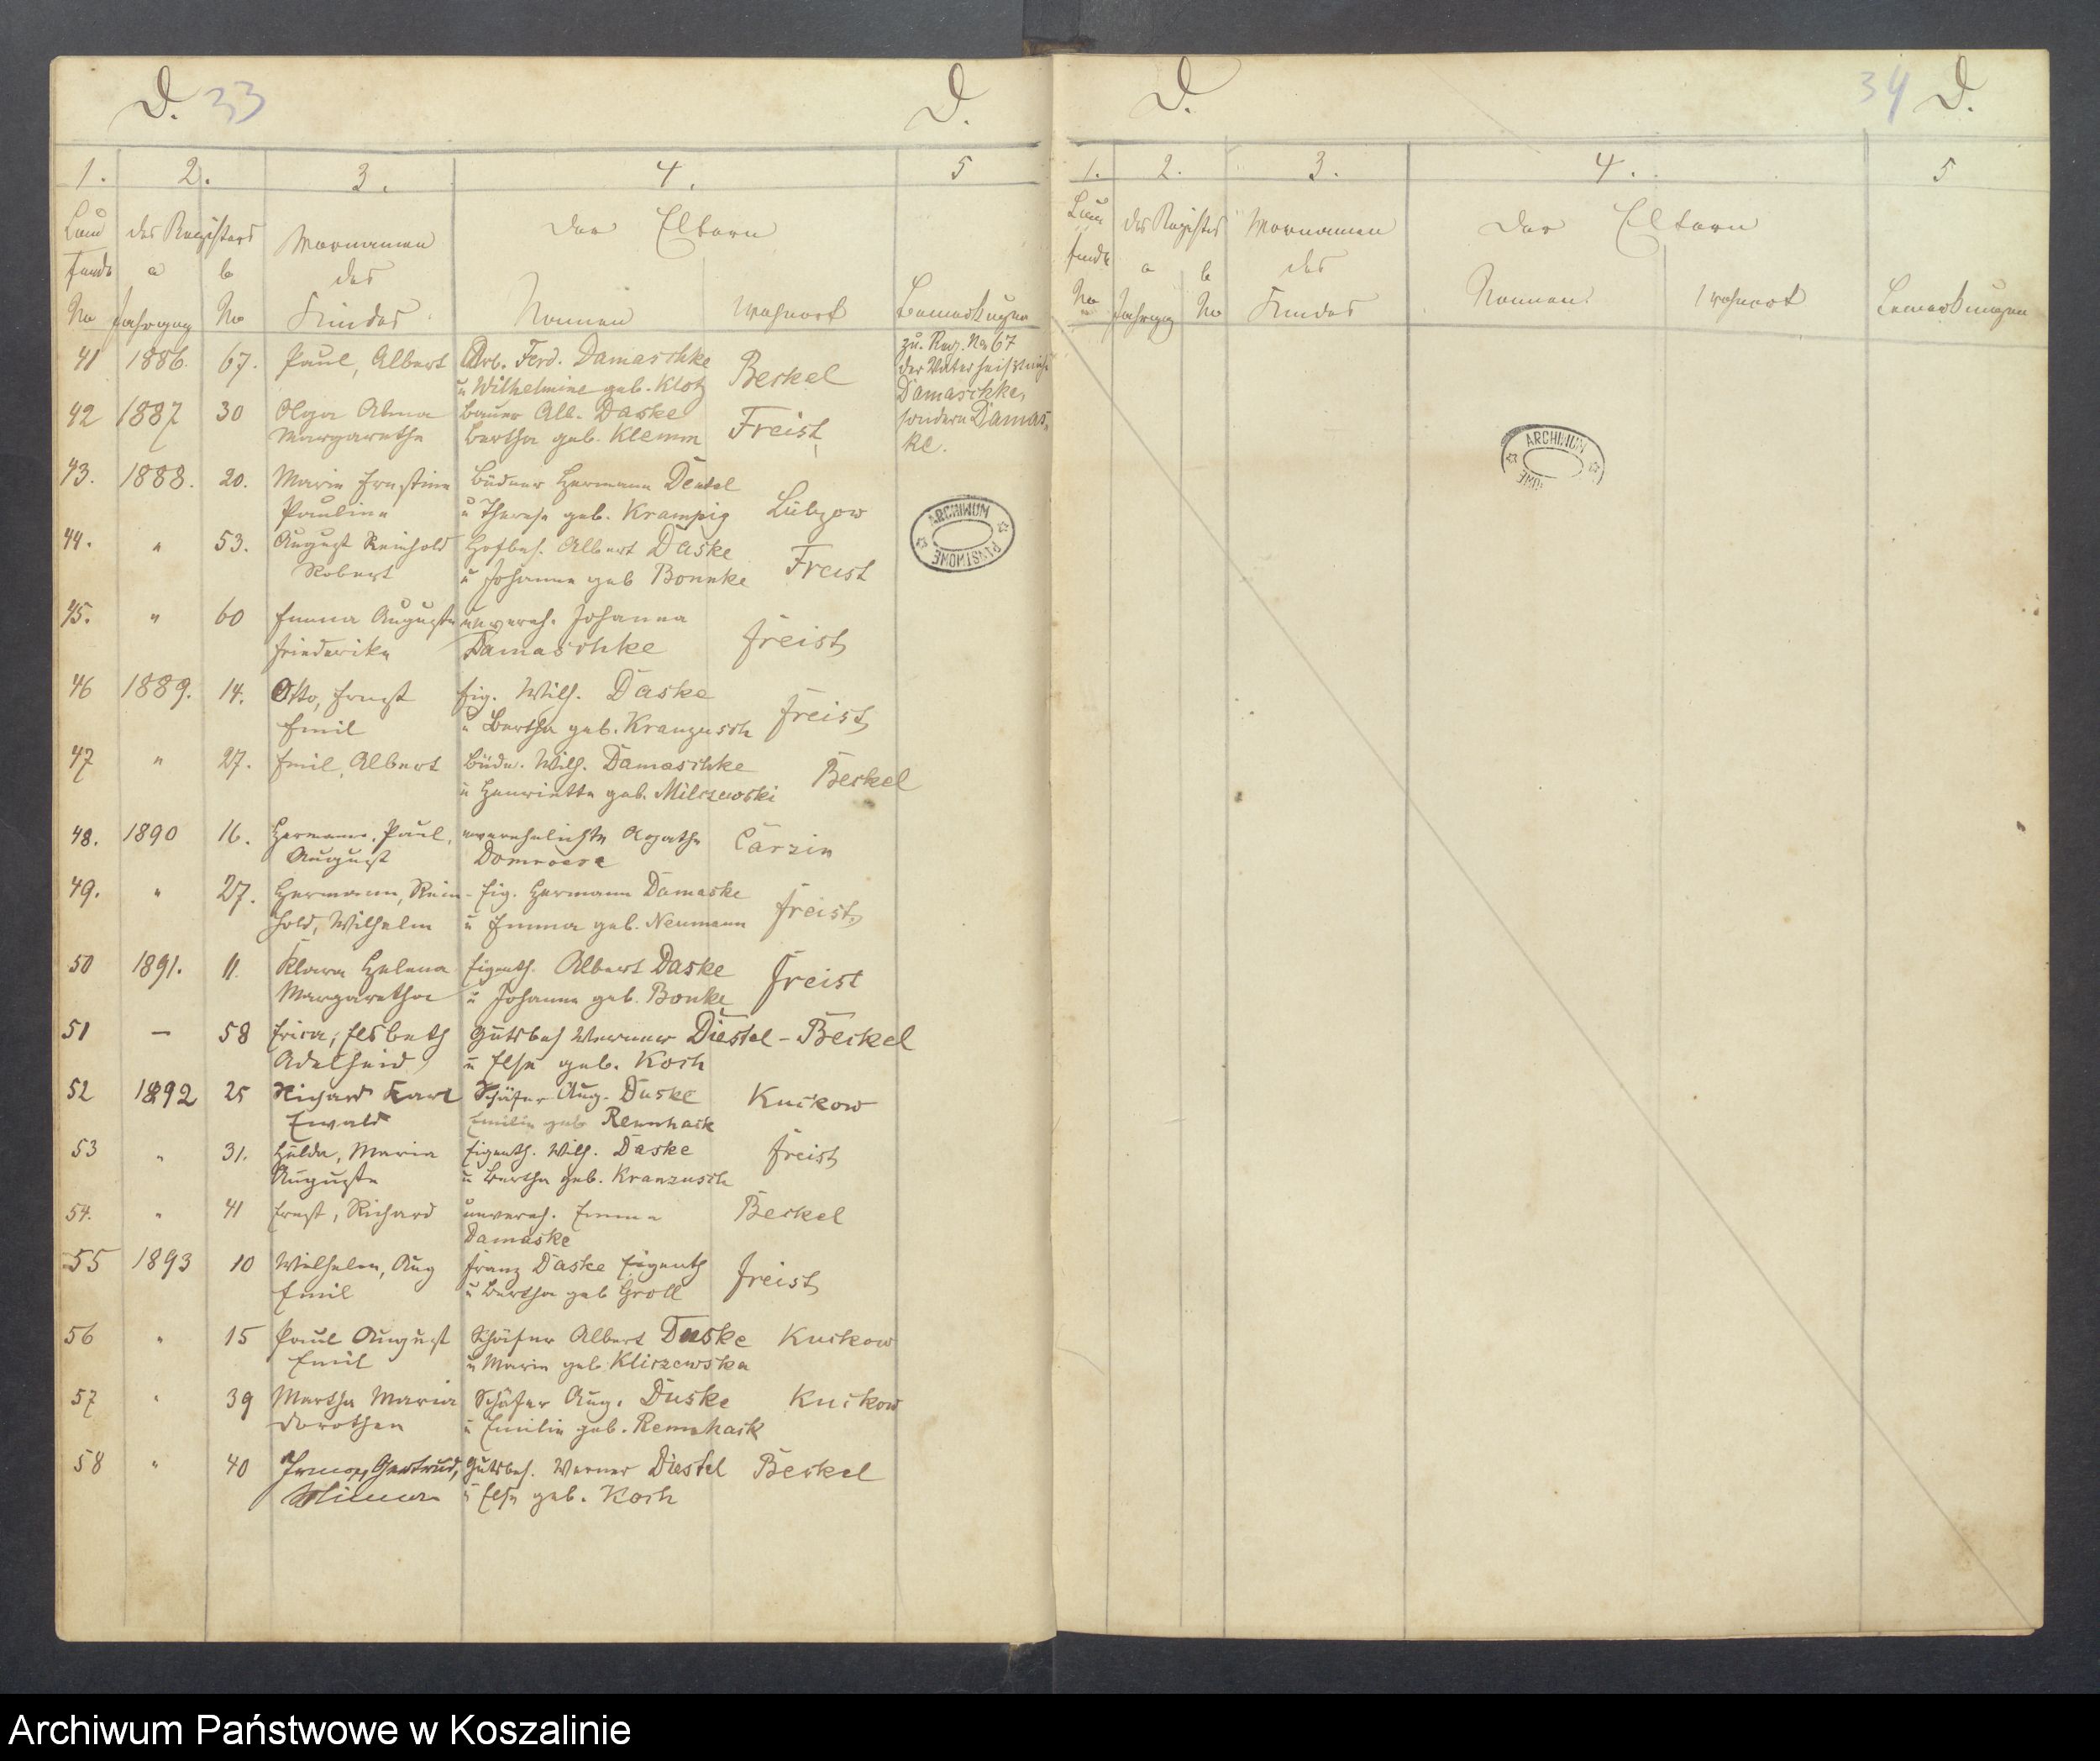 D. 33 D.
1. 2. 3. 4. 5
Lau des Registers Vornamen Der Eltern
fende a b des
No Jahrgang No Kindes Namen Wohnort Bemerkungen
41 1886. 67. Paul, Albert Arb. Ferd. Damaschke Beckel zu. Reg. No 67
u Wilhelmine geb. Klotz der Vater heißt nicht
Damaschke,
42 1887 30 Olga Alma Bauer Alb. Daske Freist sondern Damas-
Margarethe Bertha geb. Klemm ke.
43. 1888. 20. Marie Ernstine Büdner Hermann Lübzow
Pauline u Therese geb. Krampig
44. " 53. August Reinhold Hofbes. Albert Daske Freist
Robert u Johanne geb Bonnke
45. " 60 Emma Auguste unvereh. Johanna Freist
Friederike Damaschke
46 1889. 14. Otto, Ernst Eig. Wilh. Daske Freist
Emil u Bertha geb. Kranzusch
47 " 27. Emil, Albert Büdn. Wilh. Damaschke Beckel
u Henriette geb. Milczewski
48. 1890 16. Hermann, Paul, unverehelichte Agathe Carzin
August Domroese
49. " 27. Hermann, Rein- Eig. Hermann Damaske Freist
hold, Wilhelm u Emma geb. Neumann
50 1891. 11. Klara Helena Eigenth. Albert Daske Freist
Margarethe u Johanne geb. Bonke
51 — 58 Erica, Elsbeth Gutsbes Werner Diestel - Beckel
Adelheid u Else geb. Koch
52 1892 25 Richard Karl Schäfer Aug. Duske Kuckow
Ewald Emilie geb Rennhack
53 " 31. Hulda, Maria Eigenth. Wilh. Daske Freist
Auguste u Bertha geb. Kranzusch
54. " 41 Ernst, Richard unvereh. Emma Beckel
Damaske
55 1893 10 Wilhelm, Aug Franz Daske Eigenth Freist
Emil u Bertha geb Groll
56 " 15 Paul August Schäfer Albert Duske Kuckow
Emil u Marie geb Kliszewska
57 " 39 Martha Maria Schäfer Aug. Duske Kuckow
Dorothea u Emilie geb. Rennhack
58 " 40 Irma, Gertrud, Gutsbes. Werner Diestel Beckel
Minna u Else geb. Koch
ARCHIWUM PAŃSTWOWE
D. 34 D.
1. 2. 3. 4. 5
Lau des Registers Vornamen Der Eltern
fende a b des
No Jahrgang No Kindes Namen Wohnort Bemerkungen
ARCHIWUM
Archiwum Państwowe w Koszalinie